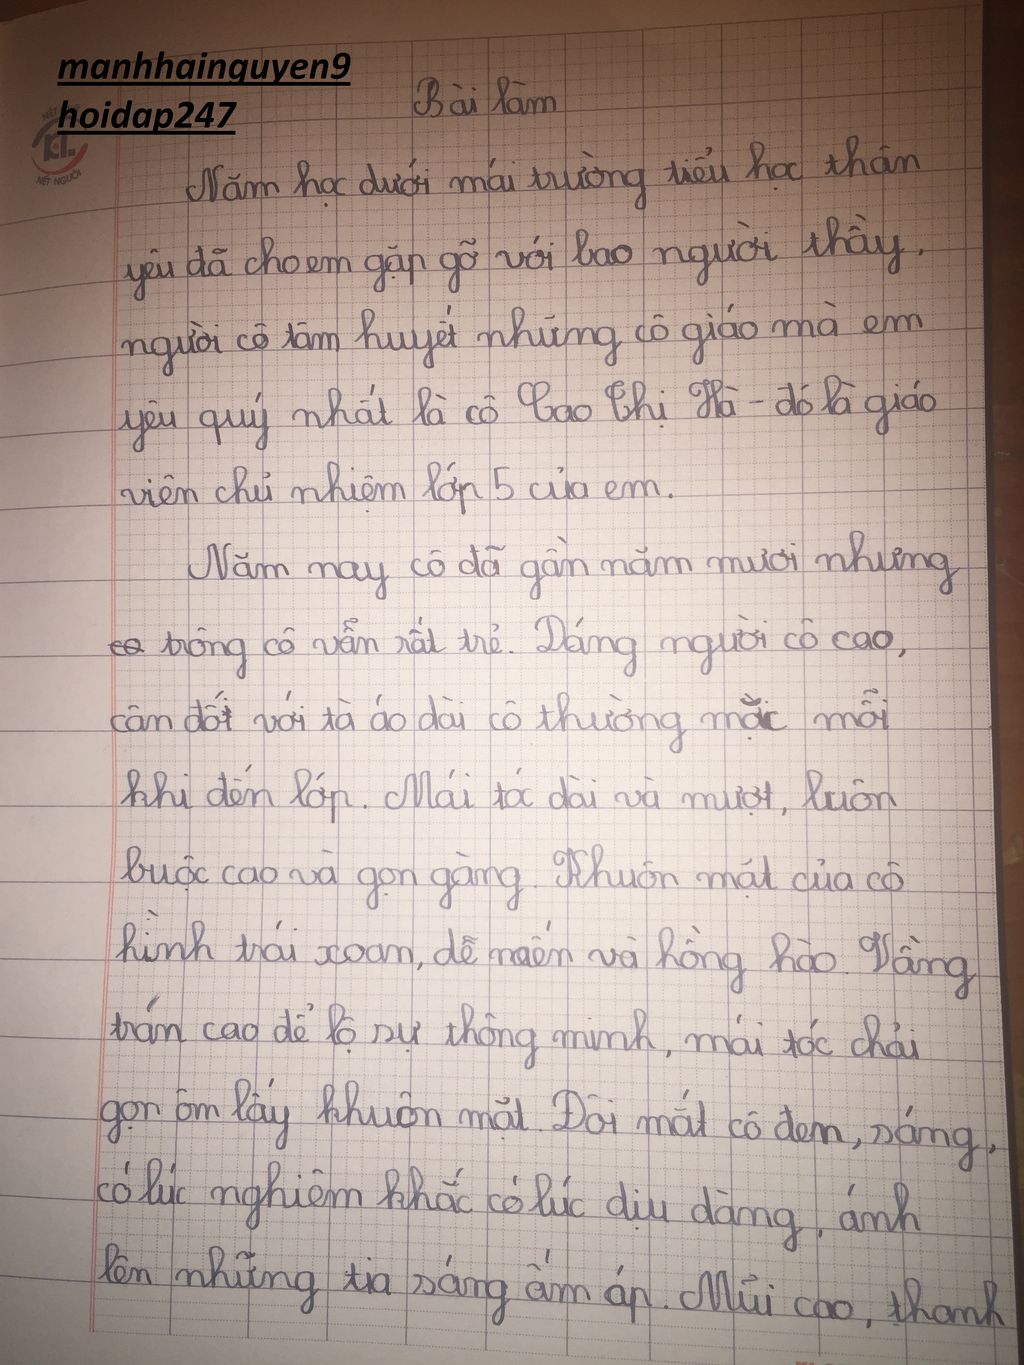 manhhainguyen9
hoidap247
NÉT NGƯỜI
Bài làm
Năm học dưới mái trường tiểu học thân
yêu đã cho em gặp gỡ với bao người thầy,
người cô tâm huyết những cô giáo mà em
yêu quý nhất là cô Cao Thị Hà - đó là giáo
viên chủ nhiệm lớp 5 của em.
Năm nay cô đã gần năm mươi nhưng
trông cô vẫn rất trẻ. Dáng người cô cao,
cân đốt với tà áo dài cô thường mặc mỗi
khi đến lớp. Mái tóc dài và mượt, luôn
buộc cao và gọn gàng. Khuôn mặt của cô
hình trái xoan, dễ maến và hồng hào. Vầng
trán cao để lộ sự thông minh, mái tóc chải
gọn ôm lấy khuôn mặt. Đôi mắt cô đem, sáng,
có lúc nghiêm khắc có lúc dịu dàng, ánh
lên những tia sáng ấm áp. Mũi cao, thanh